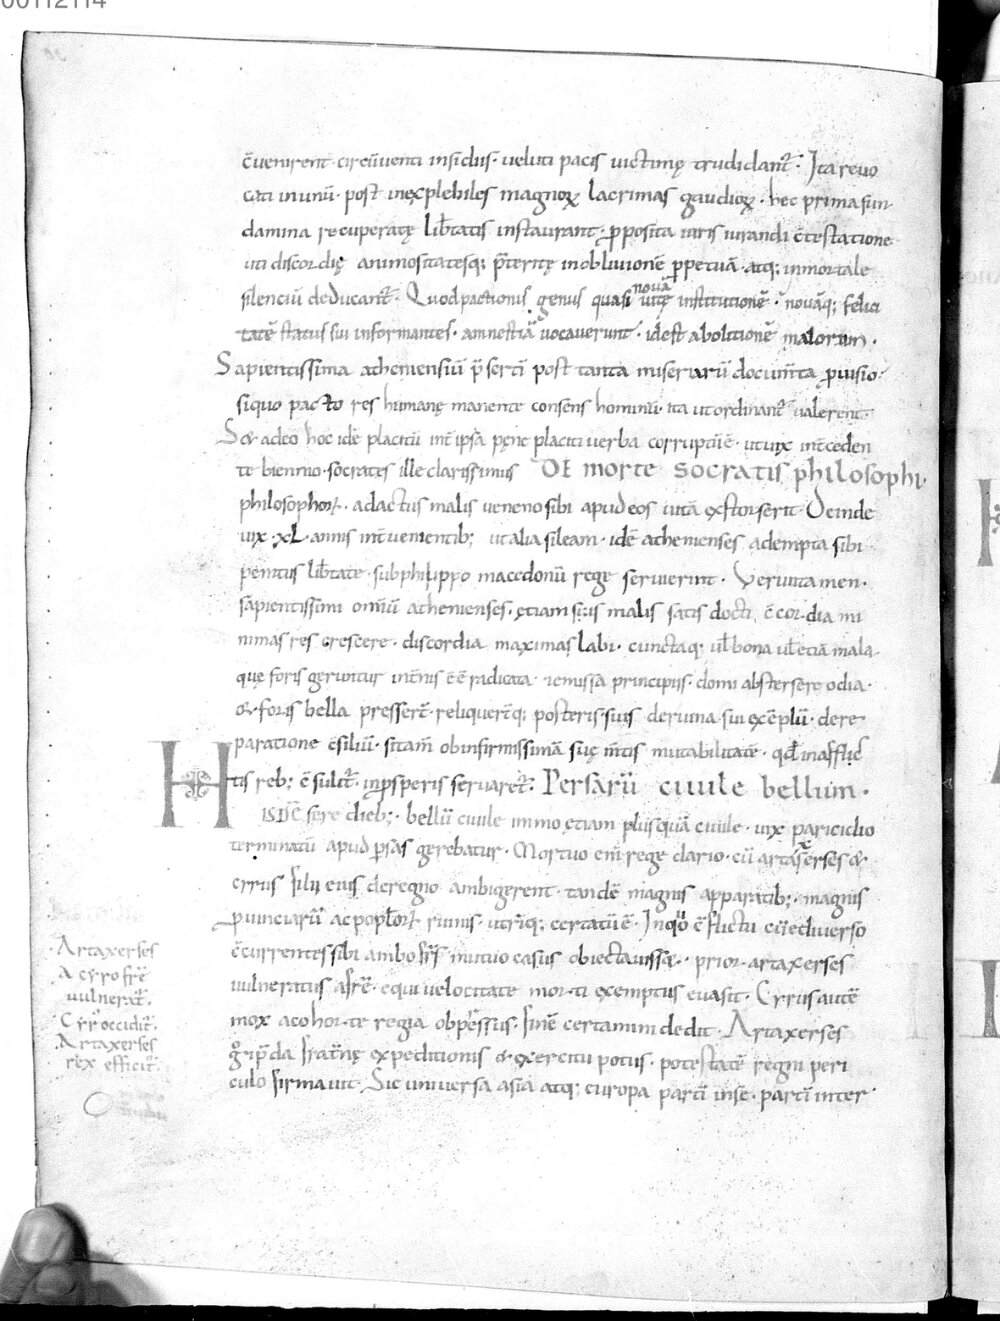 00112114
c̄uenirent· circūuenti insidiis· ueluti pacis uictimę trudidant᷑· Ita reuo
cati in unū· post inexplebiles magnoꝝ lacrimas gaudioꝝ· hec prima fun
damina recuperatę lib̄tatis instaurant· ꝓposita iuris iurandi c̄testatione
uti discordię animositatesq; p̄teritę in obliuionē ꝑpetuā· atq; inmortale
silenciū deducant᷑· Quod pactionis genus quasi nouā uitę institutionē· nouāq; felici
tatē status sui informantes· amnestiā uocauerunt· id est abolitionē malorum·
Sapientissima atheniensiū p̄sertī post tanta miseriarū documta ꝓuisio·
siquo pacto res humanę manente consens hominū ita ut ordinant᷑ ualerent·
S& adeo hoc idē placitū int̄ ipsa pęne placiti uerba corruptū ē· ut uix int̄ceden
te biennio· socrates ille clarissimus DE morte socratis philosophi·
philosophoꝝ· adactus malis ueneno sibi apud eos uitā extorserit· Deinde
uix ·xL· annis int̄uenientib; ut alia sileam· idē athenienses adempta sibi
penitus lib̄tate· sub philippo macedonū rege seruierint· Veruntamen·
sapientissimi omīū athenienses· ętiam suis malis satis docti c̄cordia mi
nimas res crescere· discordia maximas labi· cunctaq; ul̄ bona ul̄ etiā mala·
quę foris geruntur int̄nis ēē radicata· & emissa principiis· domi abstersere odia·
& foris bella presser᷑· reliquer᷑q; posteris suis de ruina sui exēplū· de re
paratione c̄siliū· si tam̄ ob infirmissimā suę mtis mutabilitatē· qd̄ in afflic
tis reb; c̄sulit᷑· in ꝓsperis seruaret᷑· Persarū ciuile bellum·
HISDĒ fere dieb;· bellū ciuile immo ętiam plusquā ciuile· uix paricidio
terminatū apud ꝑsas gerebatur· Mortuo enī rege dario· cū artaxerses &
cyrus filii eius de regno ambigerent· tandē magnis apparatib;· magnis
ꝓuinciarū ac poploꝝ ruinis· utriq; certatū ē· In quo c̄flictu cū e diuerso
c̄currentes sibi ambo frs̄ mutuo casus obiectauissē· prior artaxerses
uulneratus a frē· equi uelocitate morti exemptus euasit· Cyrus autē
mox a cohorte regia obpssus· finē certamini dedit· Artaxerses
g̊ ip̄da fratnę expeditionis & exercitu potitus· potestatē regni peri
culo firmauit· Sic uniuersa asia atq; europa partī in se· partī inter
Artaxerses
a cyro frē
uulnerat᷑·
Cyr̄ occidit᷑·
Artaxerses
rex efficit᷑·